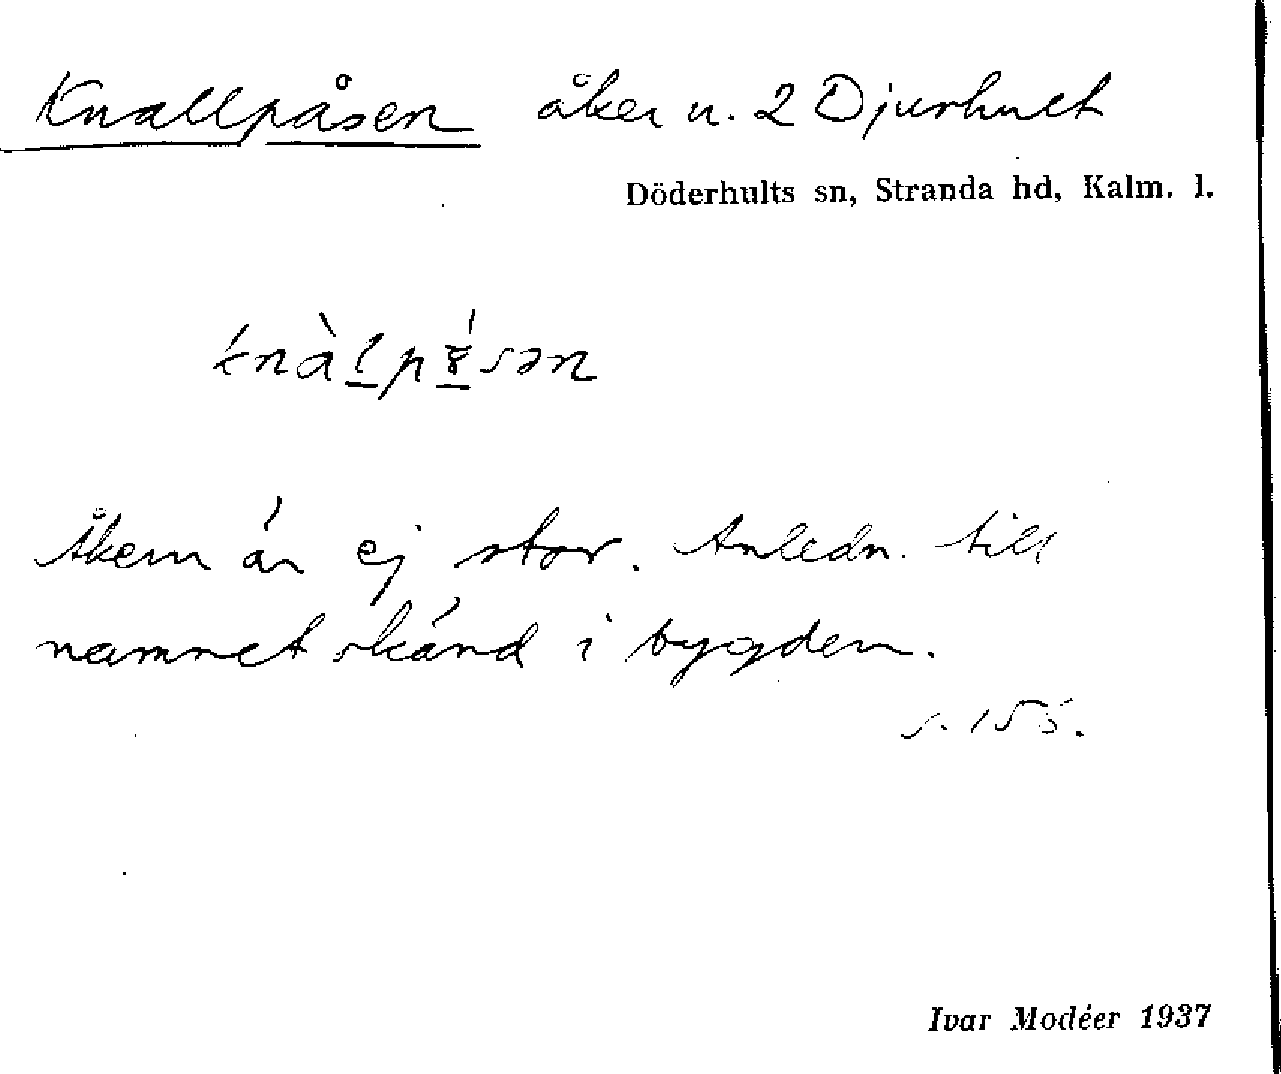 Knallpåsen åker u. 2 Djurhult
Döderhults sn, Stranda hd, Kalm. l.
Åkern är ej stor. Anledn. till
namnet okänd i bygden.
s. 155.
Ivar Modéer 1937